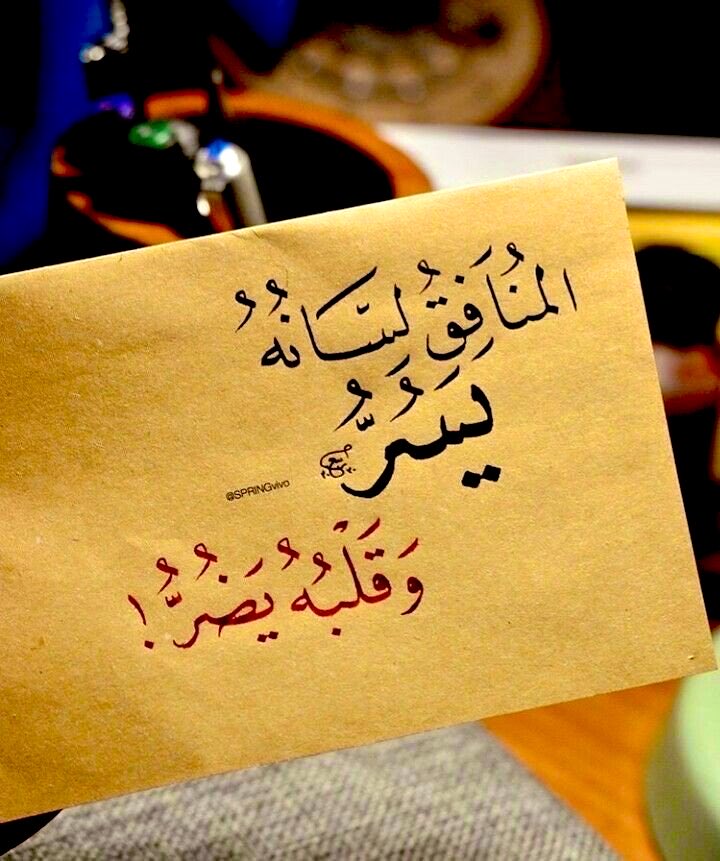 المُنَافِقُ لِسَانُهُ
يَسُرُّ
@SPRINGvivo
وَقَلْبُهُ يَضُرُّ !